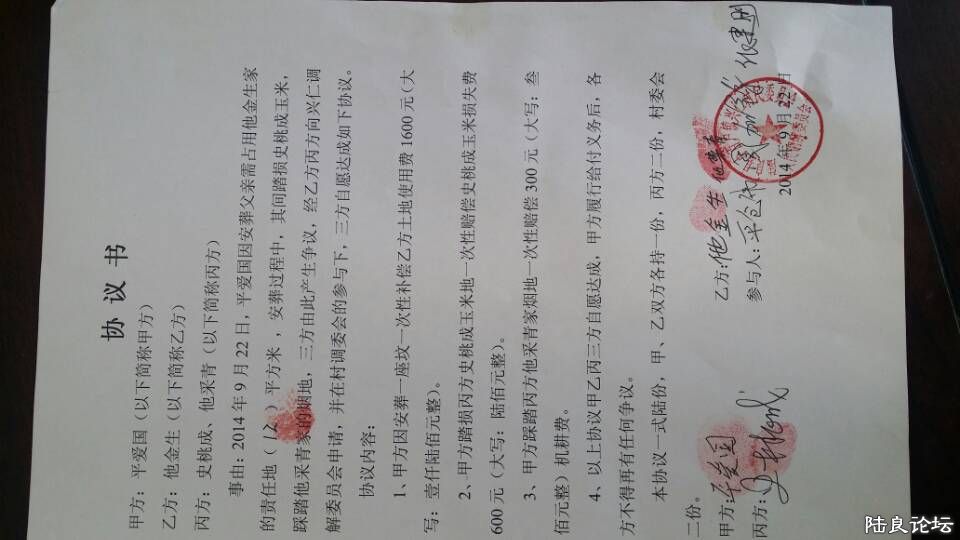 协 议 书
甲方：平爱国（以下简称甲方）
乙方：他金生（以下简称乙方）
丙方：史桃成、他采青（以下简称丙方）
事由：2014年9月22日，平爱国因安葬父亲需占用他金生家
的责任地（12）平方米，安葬过程中，其间踏损史桃成玉米，
踩踏他采青家的烟地，三方由此产生争议，经乙方丙方向兴仁调
解委员会申请，并在村调委会的参与下，三方自愿达成如下协议。
协议内容：
1、甲方因安葬一座坟一次性补偿乙方土地使用费1600元（大
写：壹仟陆佰元整）。
2、甲方踏损丙方史桃成玉米地一次性赔偿史桃成玉米损失费
600元（大写：陆佰元整）。
3、甲方踩踏丙方他采青家烟地一次性赔偿300元（大写：叁
佰元整）机耕费。
4、以上协议甲乙丙三方自愿达成，甲方履行给付义务后，各
方不得再有任何争议。
本协议一式陆份，甲、乙双方各持一份，丙方二份，村委会
二份。
甲方：平爱国 乙方：他金生 他采青
丙方：史桃成 参与人：平仓休 张建朋
2014年9月22日
陆良论坛